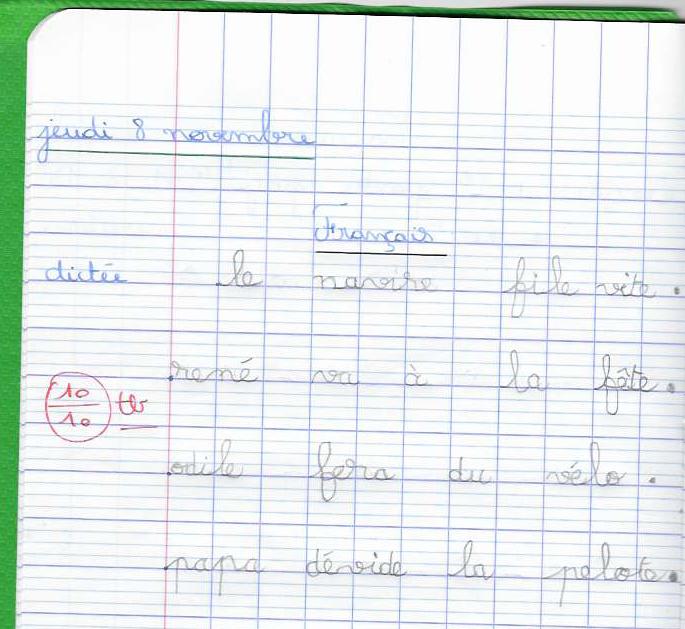 jeudi 8 novembre
Français
dictée le navire file vite.
rené va à la fête.
10/10 tb
odile fera du vélo.
papa dévide la pelote.